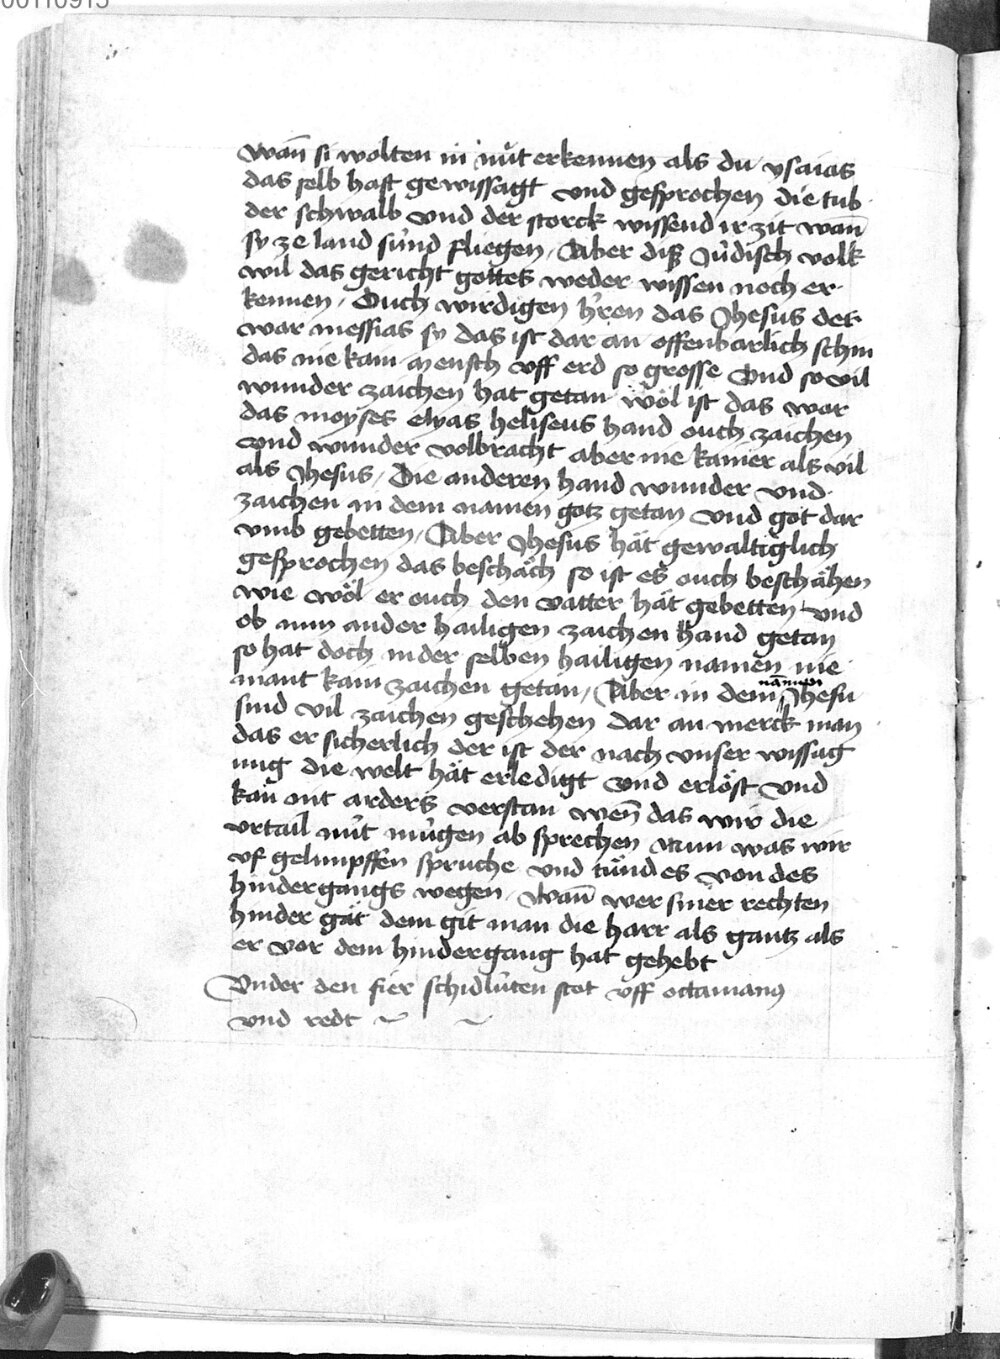 00110915
wan̄ si wolten in nu̍t erkennen als du ysaias
das selb hast gewissagt vnd gesprochen die tub
der schwalb vnd der storck wissend ir zit wan̄
sy ze land su̍nd fliegen / Aber diß Ju̍disch volk
wil das gericht gottes weder wissen noch er
kennen / Ouch wirdigen h'ren das Jhesus der
war messias sy das ist dar an offenbarlich schin
das nie kain mensch vff erd so grosse vnd so vil
wunder zaichen hat getan wol ist das war
das moyses elyas heliseus hand ouch zaichen
vnd wunder volbracht aber nie kainer als vil
als Jhesus / Die anderen hand wunder vnd
zaichen in dem namen gotz getan vnd got dar
vmb gebetten / Aber Jhesus hät gewaltiglich
gesprochen das beschäch so ist es ouch beschähen
wie wöl er ouch den vatter hät gebetten vnd
ob nun ander hailigen zaichen hand getan
so hat doch in der selben hailigen namen nie
mant kain zaichen getan / Aber in dem nämen Jhesu
sind vil zaichen geschehen dar an merck man
das er sicherlich der ist der nach vnser wissag
ung die welt hät erledigt vnd erlöst vnd
kan̄ nit anders verstan wen̄ das wir die
vrtail nu̍t mu̍gen ab sprechen Nun was wir
vf gelimpffen spruche vnd tu̍nd es von des
hindergangs wegen / Wan̄ wer siner rechten
hinder gät dem git man die harr als gantz als
er vor dem hindergang hat gehebt
Vnder den fier schidlu̍ten stot vff octauianus
vnd redt